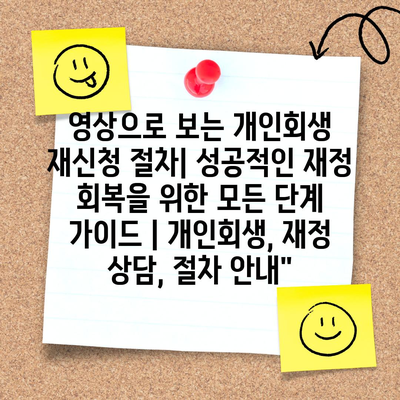 영상으로 보는 개인회생
재신청 절차| 성공적인 재정
회복을 위한 모든 단계
가이드 | 개인회생, 재정
상담, 절차 안내"